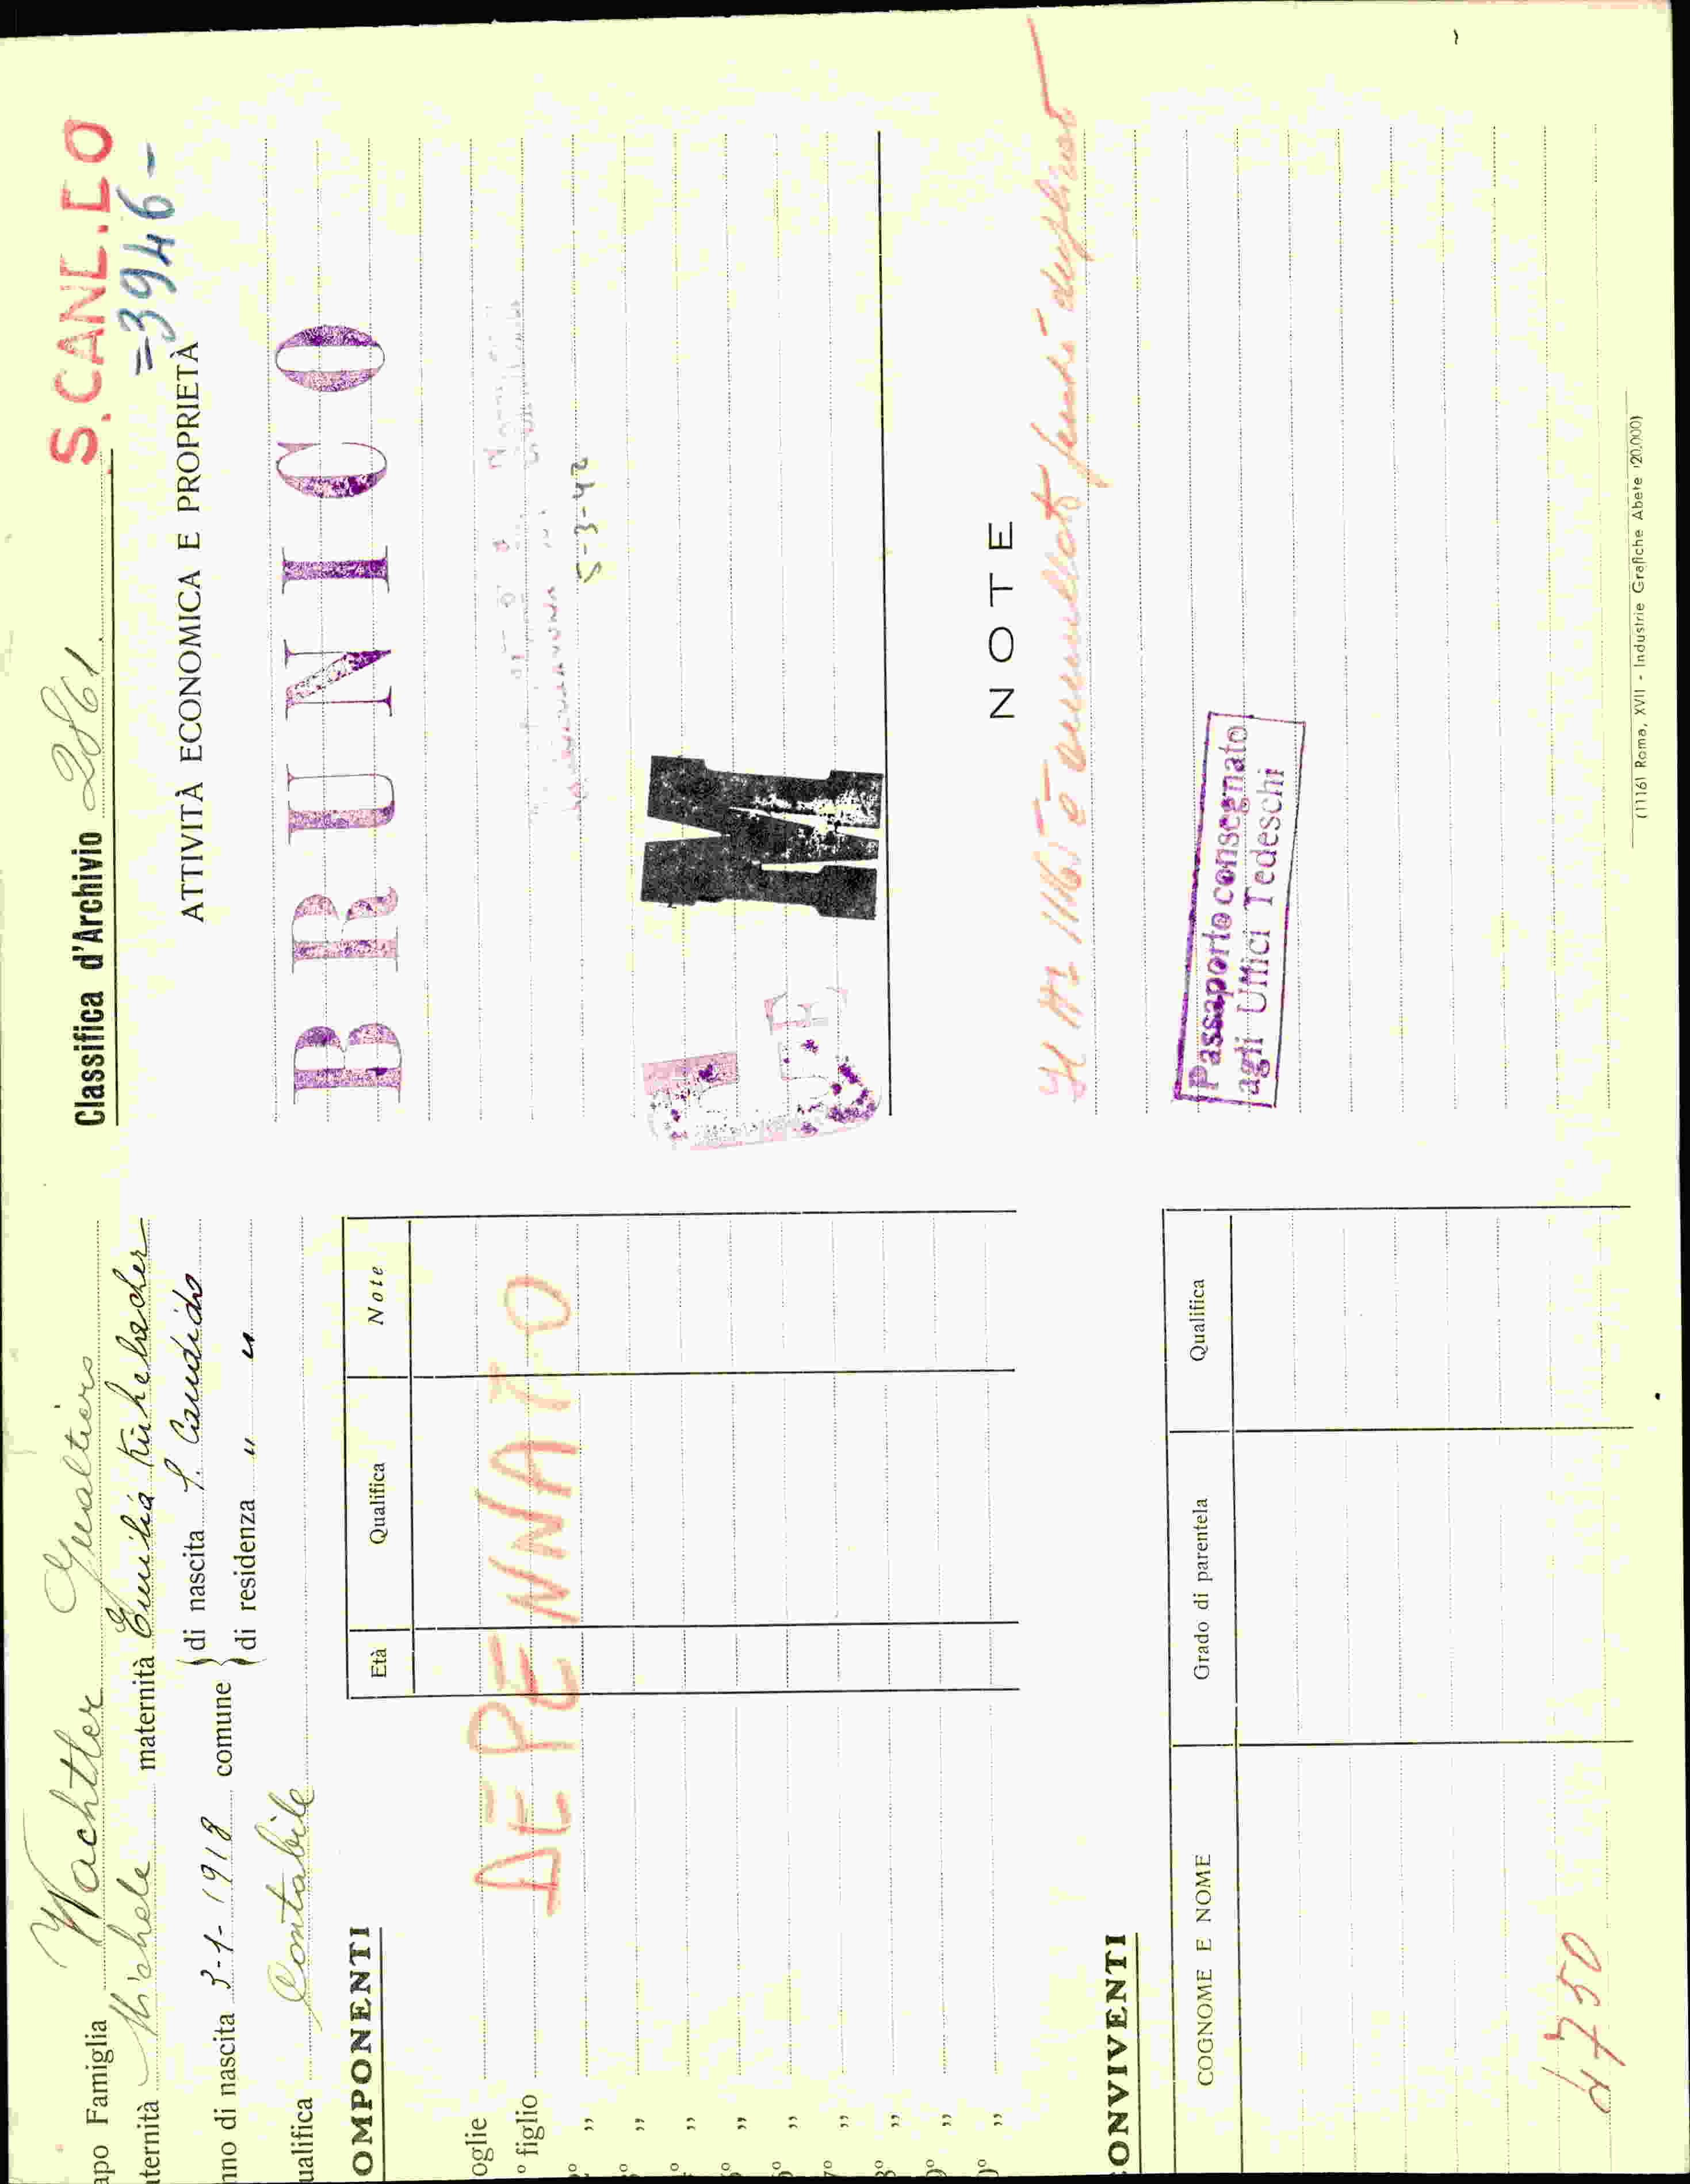 apo Famiglia Wachtler Gualtiero
aternità Michele maternità Emilia Kühebacher
nno di nascita 3-1-1918 comune di nascita S. Candido
di residenza " "
ualifica Contabile
OMPONENTI
Età Qualifica Note
oglie
° figlio
DEPENNATO
° "
° "
° "
° "
° "
7° "
8° "
9° "
0° "
ONVIVENTI
COGNOME E NOME Grado di parentela Qualifica
4750
Classifica d'Archivio 2861
S.CAND.DO
=3946-
ATTIVITÀ ECONOMICA E PROPRIETÀ
BRUNICO
5-3-42
M
NOTE
è annullato perché duplicato
Passaporto consegnato
agli Uffici Tedeschi
(11161 Roma, XVII - Industrie Grafiche Abete (20.000)